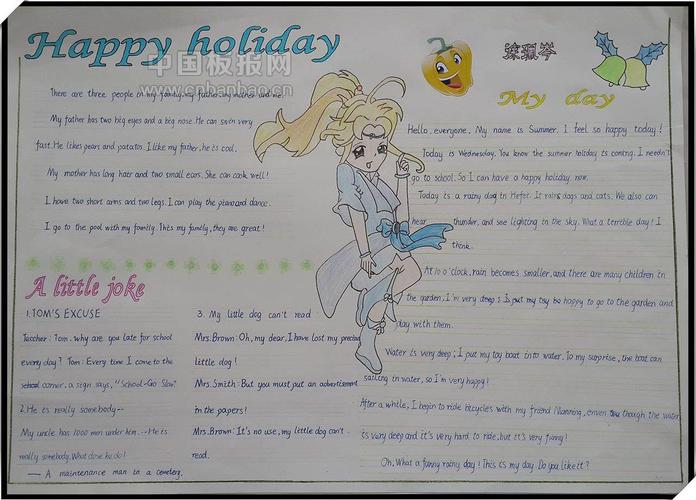 Happy holiday
中国板报网
www.cnbanbao.cn
There are three people in my family, my father, my mother and me.
My father has two big eyes and a big nose. He can swim very
fast. He likes pears and potatos. I like my father, he is cool.
My mother has long hair and two small ears. She can cook well!
I have two short arms and two legs. I can play the piano and dance.
I go to the pool with my family. This my family, they are great!
A little joke
1. TOM'S EXCUSE
Teacher: Tom. why are you late for school
every day? Tom: Every time I come to the
school corner, a sign says, "School-Go Slow"
2. He is really somebody--
My uncle has 1000 men under him. --He is
really somebody. What dose he do!
— A maintenance man in a cemetery.
3. My little dog can't read
Mrs. Brown: Oh, my dear, I have lost my precious
little dog!
Mrs Smith: But you must put an advertisement
in the papers!
Mrs. Brown: It's no use, my little dog can't
read.
My day
Hello, everyone. My name is Summer. I feel so happy today!
Today is Wednesday. You know the summer holiday is coming. I needn't
go to school. So I can have a happy holiday now.
Today is a rainy day in Hefei. It rains dogs and cats. We also can
hear thunder, and see lighting in the sky. What a terrible day! I
think.
At 10 o'clock, rain becomes smaller, and there are many children in
the garden, I'm very happy to go to the garden and
play with them.
Water is very deep; I put my toy boat into water. To my surprise, the boat can
sailing in water, so I'm very happy!
After a while, I begin to ride bicycles with my friend though the water
is very deep and it's very hard to ride, but it's very funny!
Oh, What a funny rainy day! This is my day. Do you like it?